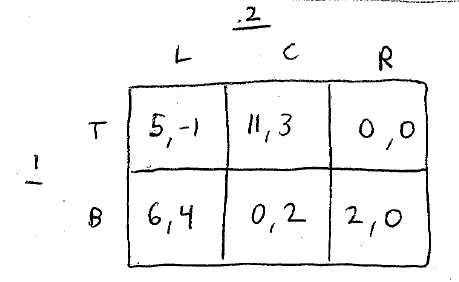 2
L C R
T 5,-1 11,3 0,0
1
B 6,4 0,2 2,0